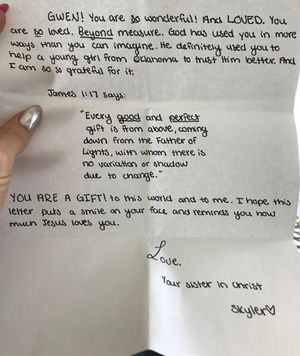 GWEN! You are so wonderful! And LOVED. You
are so loved. Beyond measure. God has used you in more
ways than you can imagine. He definitely used you to
help a young girl from Oklahoma to trust Him better. And
I am so so grateful for it.
James 1:17 says:
"Every good and perfect
gift is from above, coming
down from the Father of
Lights, with whom there is
no variation or shadow
due to change."
YOU ARE A GIFT! to this world and to me. I hope this
letter puts a smile on your face and reminds you how
much Jesus loves you.
Love,
Your sister in Christ
Skyler♡